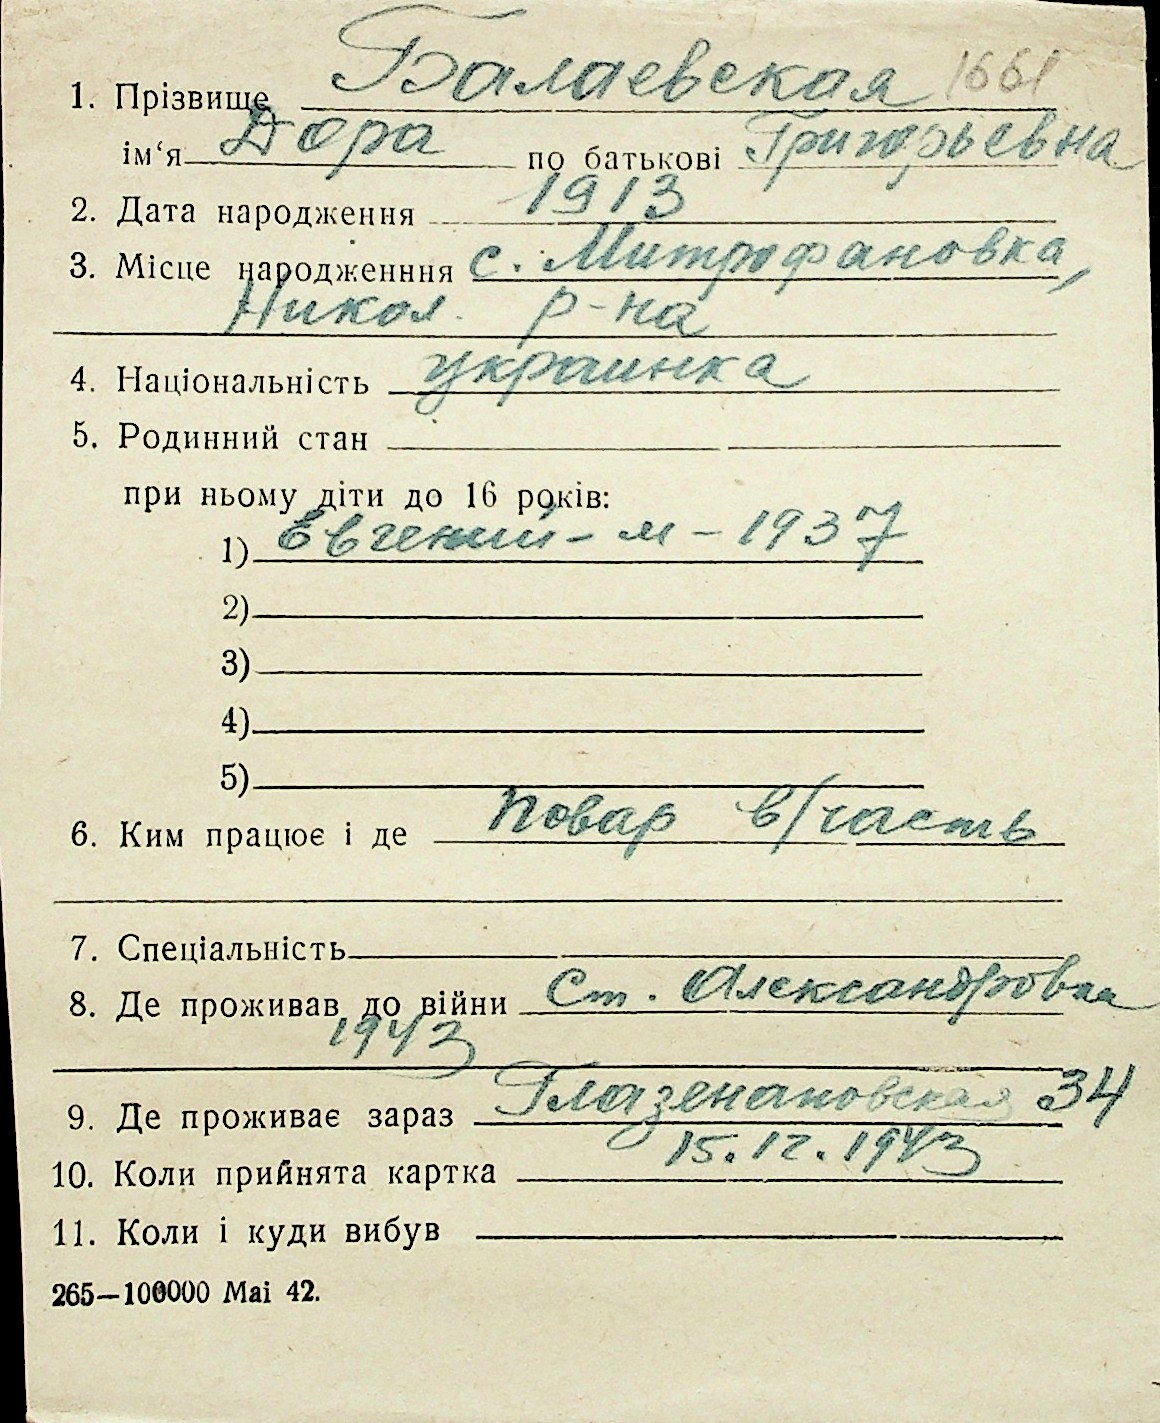 1. Прізвище Балаевская 1661
ім‘я Дора по батькові Григорьевна
2. Дата народження 1913
3. Місце народженння с. Митрофановка,
Никол. р-на
4. Національність украинка
5. Родинний стан
при ньому діти до 16 років:
1) Евгений - м - 1937
2)
3)
4)
5)
6. Ким працює і де повар в/часть
7. Спеціальність
8. Де проживав до війни Ст. Александровка
1943
9. Де проживає зараз Глазенановская 34
10. Коли прийнята картка 15.12.1943
11. Коли і куди вибув
265—100000 Маі 42.